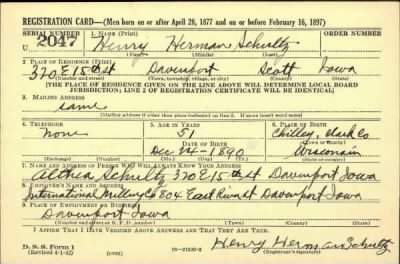 REGISTRATION CARD—(Men born on or after April 28, 1877 and on or before February 16, 1897)
SERIAL NUMBER 1. NAME (Print) ORDER NUMBER
2047 Henry Herman Schultz
(First) (Middle) (Last)
2. PLACE OF RESIDENCE (Print)
320 E 15th St Davenport Scott Iowa
(Number and street) (Town, township, village, or city) (County) (State)
[THE PLACE OF RESIDENCE GIVEN ON THE LINE ABOVE WILL DETERMINE LOCAL BOARD
JURISDICTION; LINE 2 OF REGISTRATION CERTIFICATE WILL BE IDENTICAL]
3. MAILING ADDRESS
same
[Mailing address if other than place indicated on line 2. If same insert word same]
4. TELEPHONE 5. AGE IN YEARS 6. PLACE OF BIRTH
none 51 Clark Co
DATE OF BIRTH (Town or county)
Dec 1890 Wisconsin
(Exchange) (Number) (Mo.) (Day) (Yr.) (State or country)
7. NAME AND ADDRESS OF PERSON WHO WILL ALWAYS KNOW YOUR ADDRESS
Althea Schultz 320 E 15th St Davenport Iowa
8. EMPLOYER'S NAME AND ADDRESS
International Milling Co 804 East River St Davenport Iowa
9. PLACE OF EMPLOYMENT OR BUSINESS
Davenport Iowa
(Number and street or R. F. D. number) (Town) (County) (State)
I AFFIRM THAT I HAVE VERIFIED ABOVE ANSWERS AND THAT THEY ARE TRUE.
D. S. S. Form 1
(Revised 4-1-42) (over) 16—21630-2 Henry Herman Schultz
(Registrant's signature)